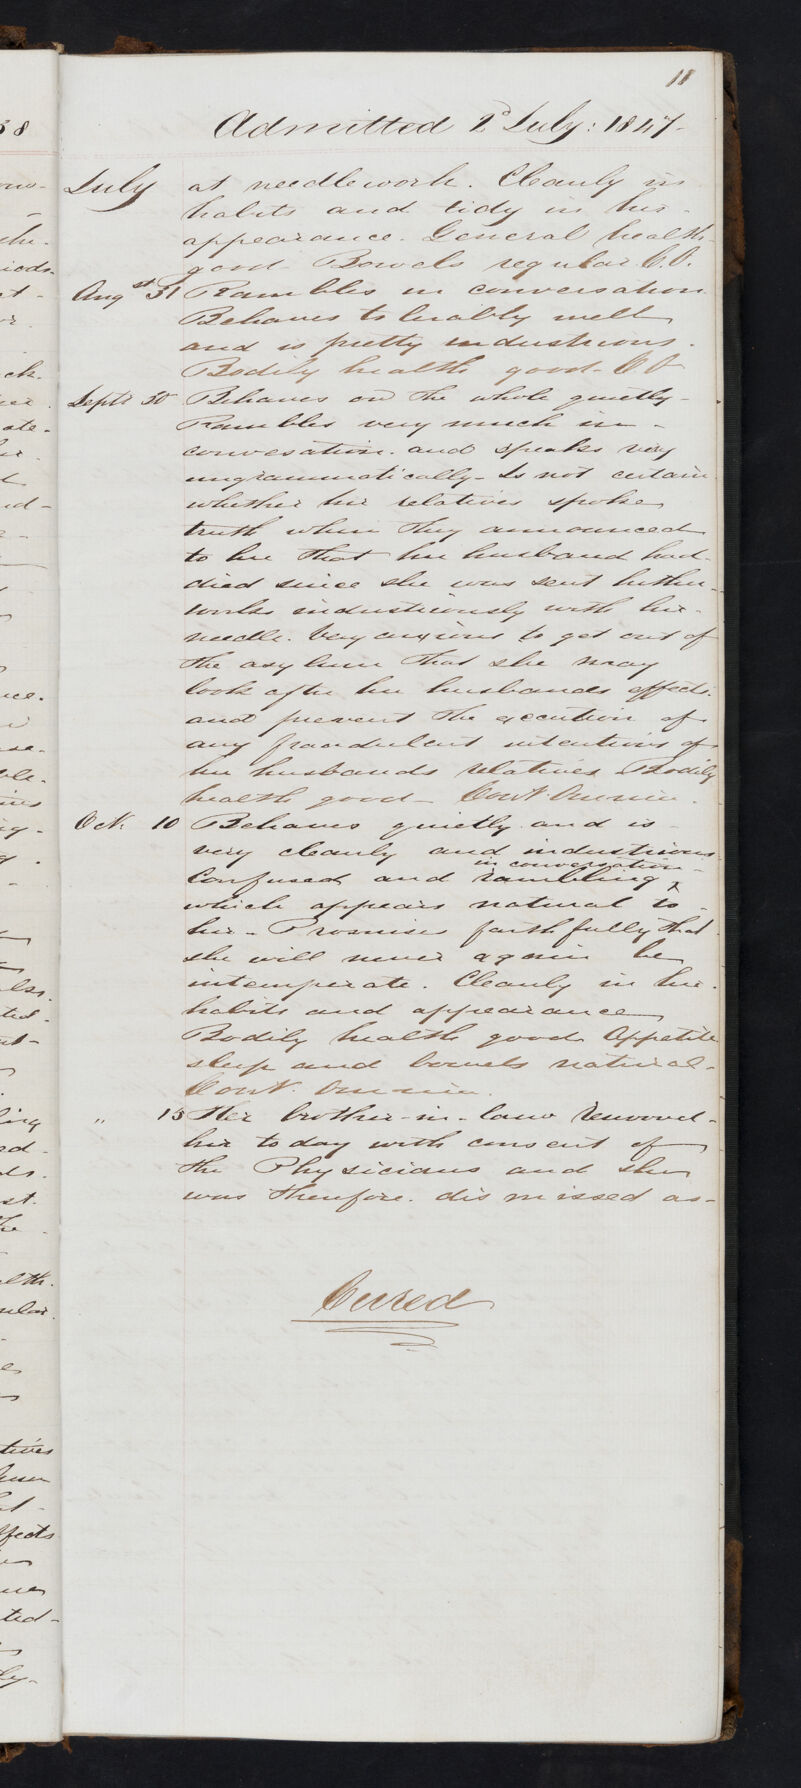 11
Admitted 2d July: 1847-
July at needlework. Cleanly in
habits and tidy in her -
appearance. General health -
good Bowels regular C.O.
Augst 31 Rambles in conversation
Behaves tolerably well
and is pretty industrious.
Bodily health good - C O
Septr 30 Behaves on the whole quietly -
Rambles very much in -
convesation. and speaks very
ungrammatically - Is not certain
whether her relatives spoke
truth when they announced
to her that her husband had -
died since she was sent hither -
works industriously with her -
needle. Very anxious to get out of
the asylum that she may
look after her husbands effects.
and prevent the execution of
any fraudulent intentions of
her husbands relatives Bodily
health good - Cont. Omnia.
Oct. 10 Behaves quietly and is -
very cleanly and industrious
in conversation -
Confused and rambling ^
which appears natural to -
her - Promises faithfully that
she will never again be
intemperate. Cleanly in her.
habits and appearance
Bodily health good Appetite
sleep and bowels natural -
Cont. Omnia.
" 15 Her brother-in-law removed -
her today with consent of
the Physicians and she
was therefore. dismissed as -
Cured